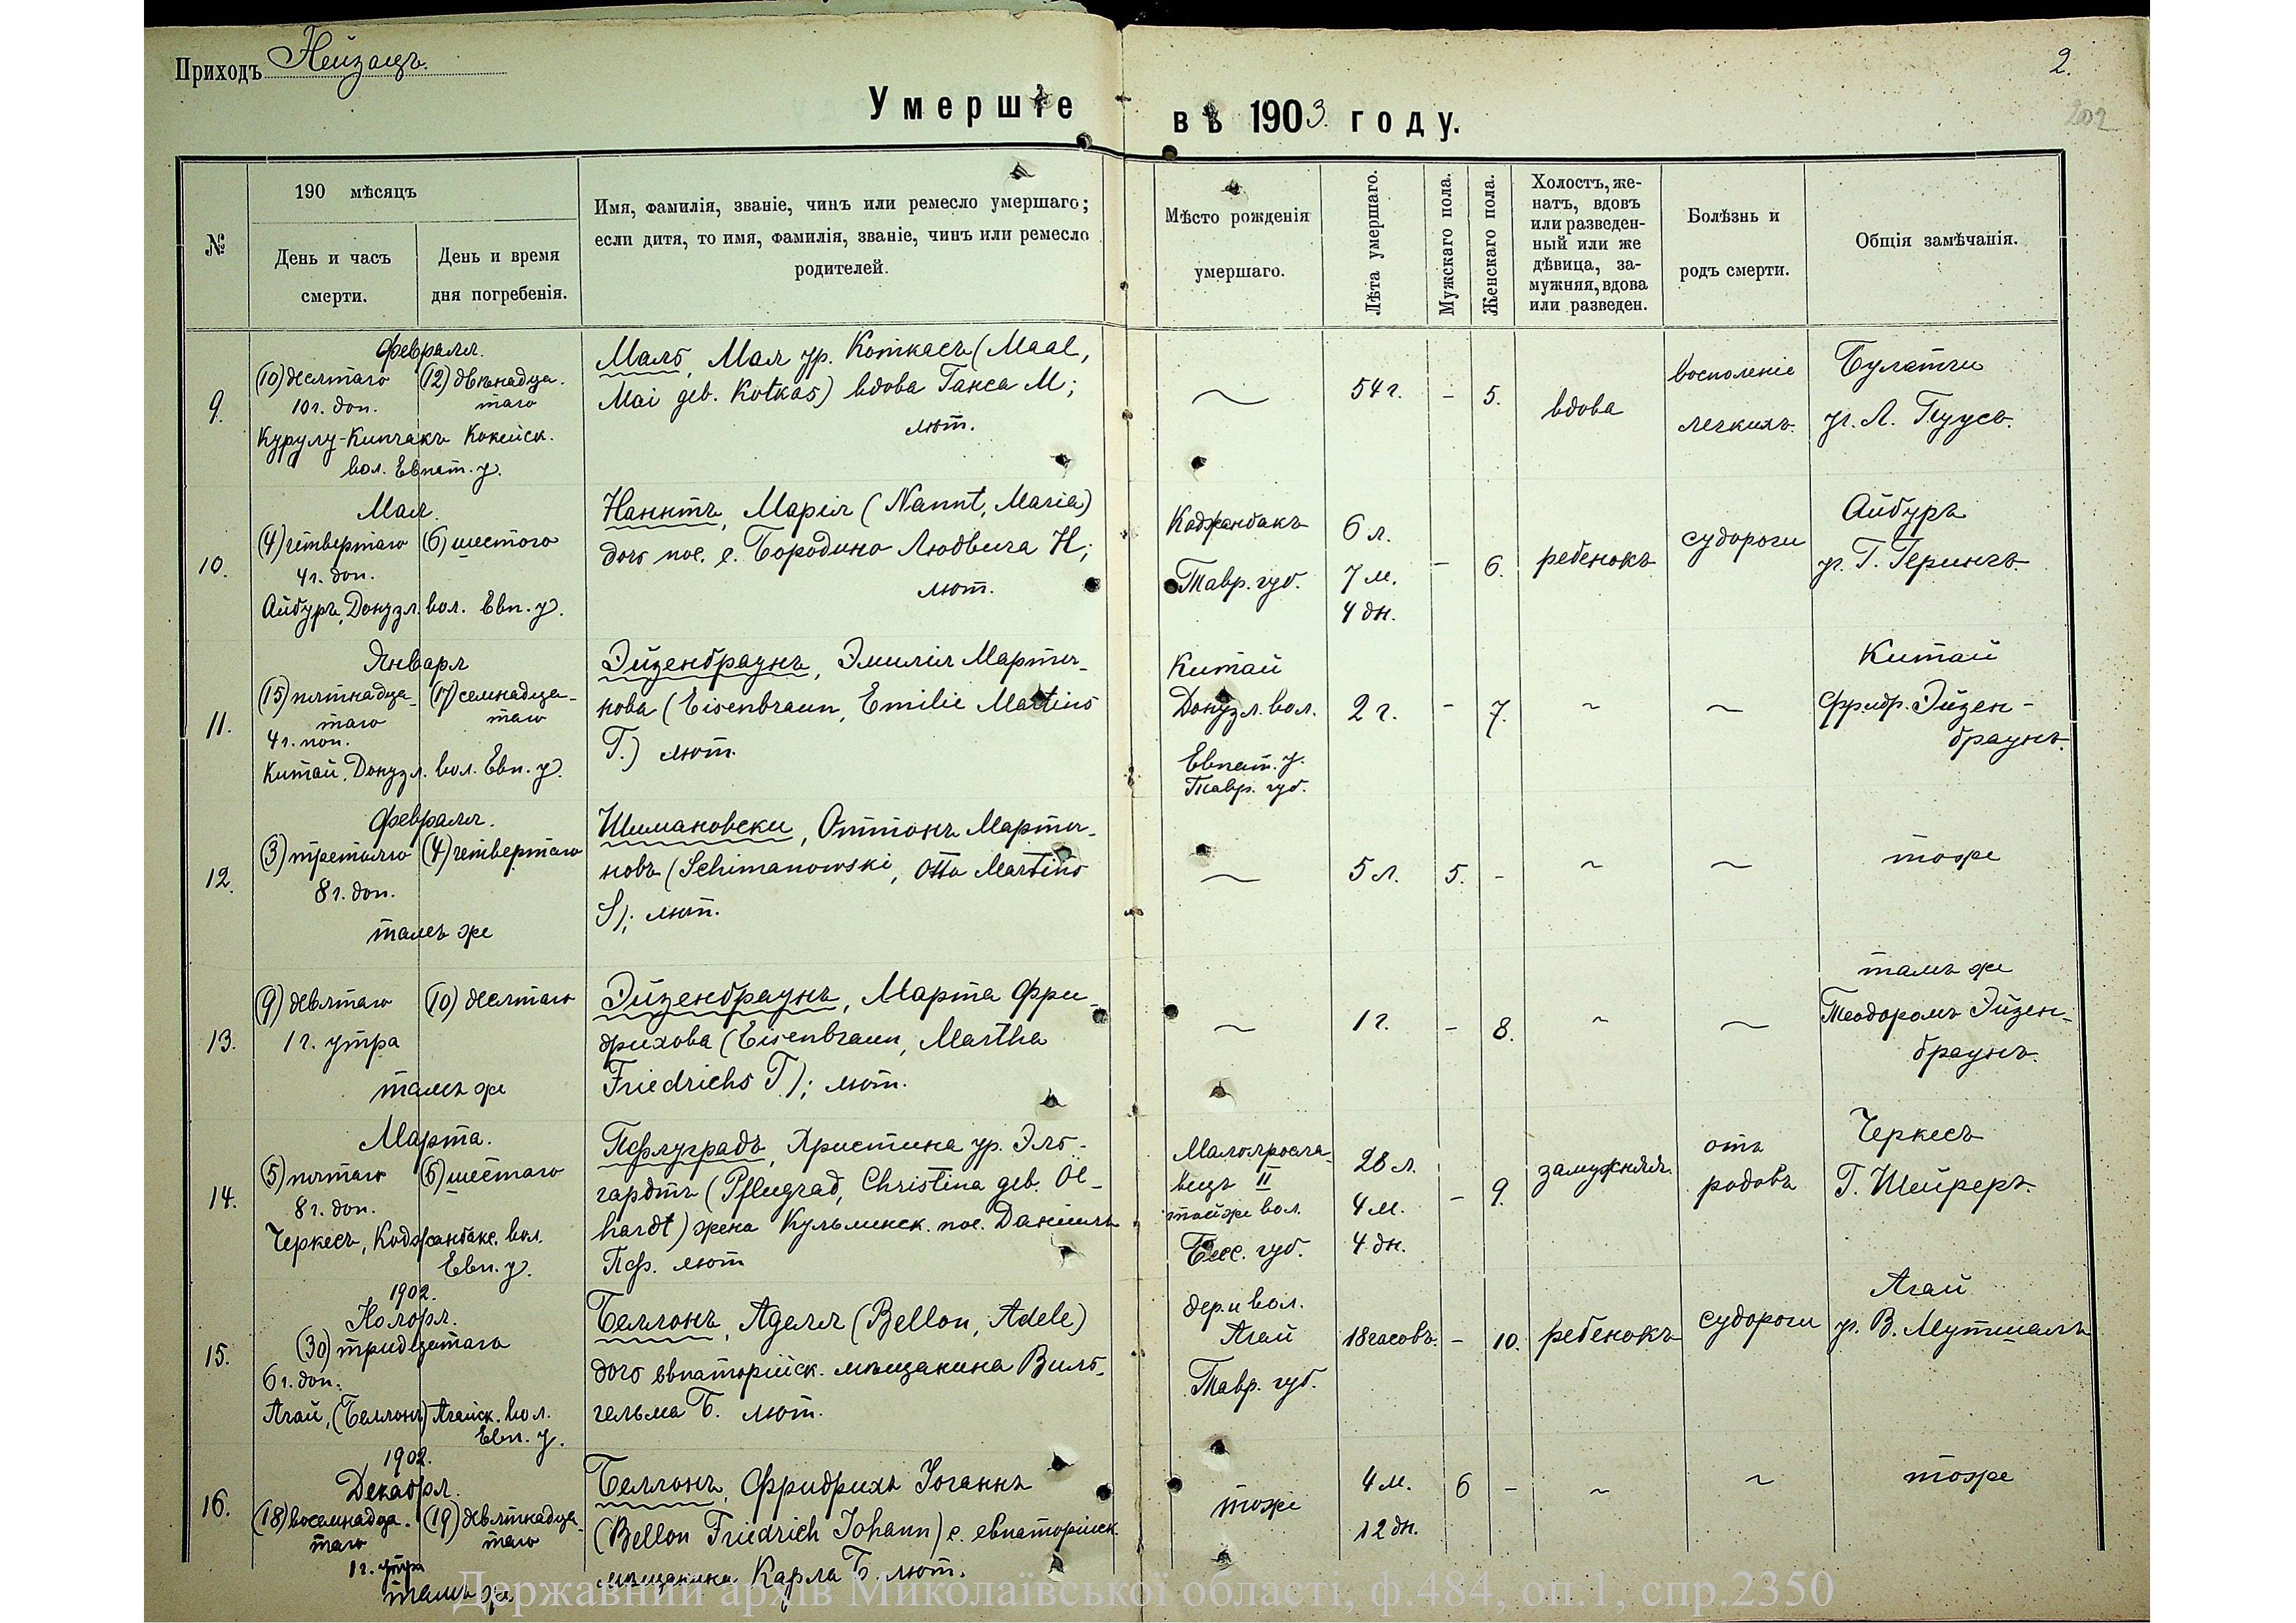 Приходъ Нейзацъ.
2.
202
Умершіе въ 1903 году.
№
190 мѣсяцъ
День и часъ смерти.
День и время дня погребенія.
Имя, фамилія, званіе, чинъ или ремесло умершаго;
если дитя, то имя, фамилія, званіе, чинъ или ремесло
родителей.
Мѣсто рожденія
умершаго.
Лѣта умершаго.
Мужскаго пола.
Женскаго пола.
Холостъ, же-
натъ, вдовъ
или разведен-
ный или же
дѣвица, за-
мужняя, вдова
или разведен.
Болѣзнь и
родъ смерти.
Общія замѣчанія.
9.
Февраля.
(10) десятаго
10 ч. доп.
(12) двѣнадца-
таго
Курулу-Кипчакъ Кокейск.
вол. Евпат. у.
Маль, Мая ур. Коткасъ (Maal,
Mai geb. Kotkas) вдова Ганса М;
лют.
54 г.
-
5.
вдова
воспаленіе
легкихъ.
Булатчи
уч. А. Пуусъ.
10.
Мая.
(4) четвертаго
4 ч. доп.
(6) шестого
Айбуръ, Донузл. вол. Евп. у.
Наннтъ, Марія (Nannt, Maria)
дочь пос. с. Бородино Людвига Н;
лют.
Коджанбакъ
Тавр. губ.
6 л.
7 м.
4 дн.
-
6.
ребенокъ
судороги
Айбуръ
уч. Г. Герингъ
11.
Января
(15) пятнадца-
таго
4 ч. поп.
(17) семнадца-
таго
Китай, Донузл. вол. Евп. у.
Эйзенбраунъ, Эмилія Марти-
нова (Eisenbraun, Emilie Martins
T.) лют.
Китай
Донузл. вол.
Евпат. у.
Тавр. губ.
2 г.
-
7.
~
~
Китай
Фридр. Эйзен-
браунъ.
12.
Февраля.
(3) третьяго
8 ч. доп.
(4) четвертаго
тамъ же
Шимановски, Оттонъ Марти-
новъ (Schimanowski, Otto Martins
S); лют.
5 л.
5.
-
~
~
тоже
13.
(9) девятаго
1 ч. утра
(10) десятаго
тамъ же
Эйзенбраунъ, Марта Фри-
дрихова (Eisenbraun, Martha
Friedrichs T); лют.
1 г.
-
8.
~
~
тамъ же
Теодоромъ Эйзен-
браунъ.
14.
Марта.
(5) пятаго
8 ч. доп.
(6) шестаго
Черкесъ, Коджанбакс. вол.
Евп. у.
Пфлуградъ, Христина ур. Эль-
гардтъ (Pflugrad, Christina geb. Oe-
hardt) жена Кульминск. пос. Даніила
Пф. лют
Малояросла-
вецъ II
той же вол.
Бесс. губ.
28 л.
4 м.
4 дн.
-
9.
замужняя.
отъ
родовъ
Черкесъ
Г. Шейреръ.
15.
1902.
Ноября.
(30) тридцатаго
6 ч. доп.
Агай, (Беллонъ) Агайск. вол.
Евп. у.
Беллонъ, Аделя (Bellon, Adele)
дочь евпаторійск. мѣщанина Виль-
гельма Б. лют.
дер. и вол.
Агай
Тавр. губ.
18 часовъ.
-
10.
ребенокъ
судороги
Агай
уч. В. Мутшалъ
16.
1902.
Декабря.
(18) восемнадца-
таго
1 ч. утра
(19) девятнадца-
таго
тамъ же
Беллонъ, Фридрихъ Іоганнъ
(Bellon Friedrich Johann) с. евпаторійск.
мѣщанина Карла Б. лют.
тоже
4 м.
12 дн.
6
-
~
~
тоже
Державний архів Миколаївської області, ф.484, оп.1, спр.2350